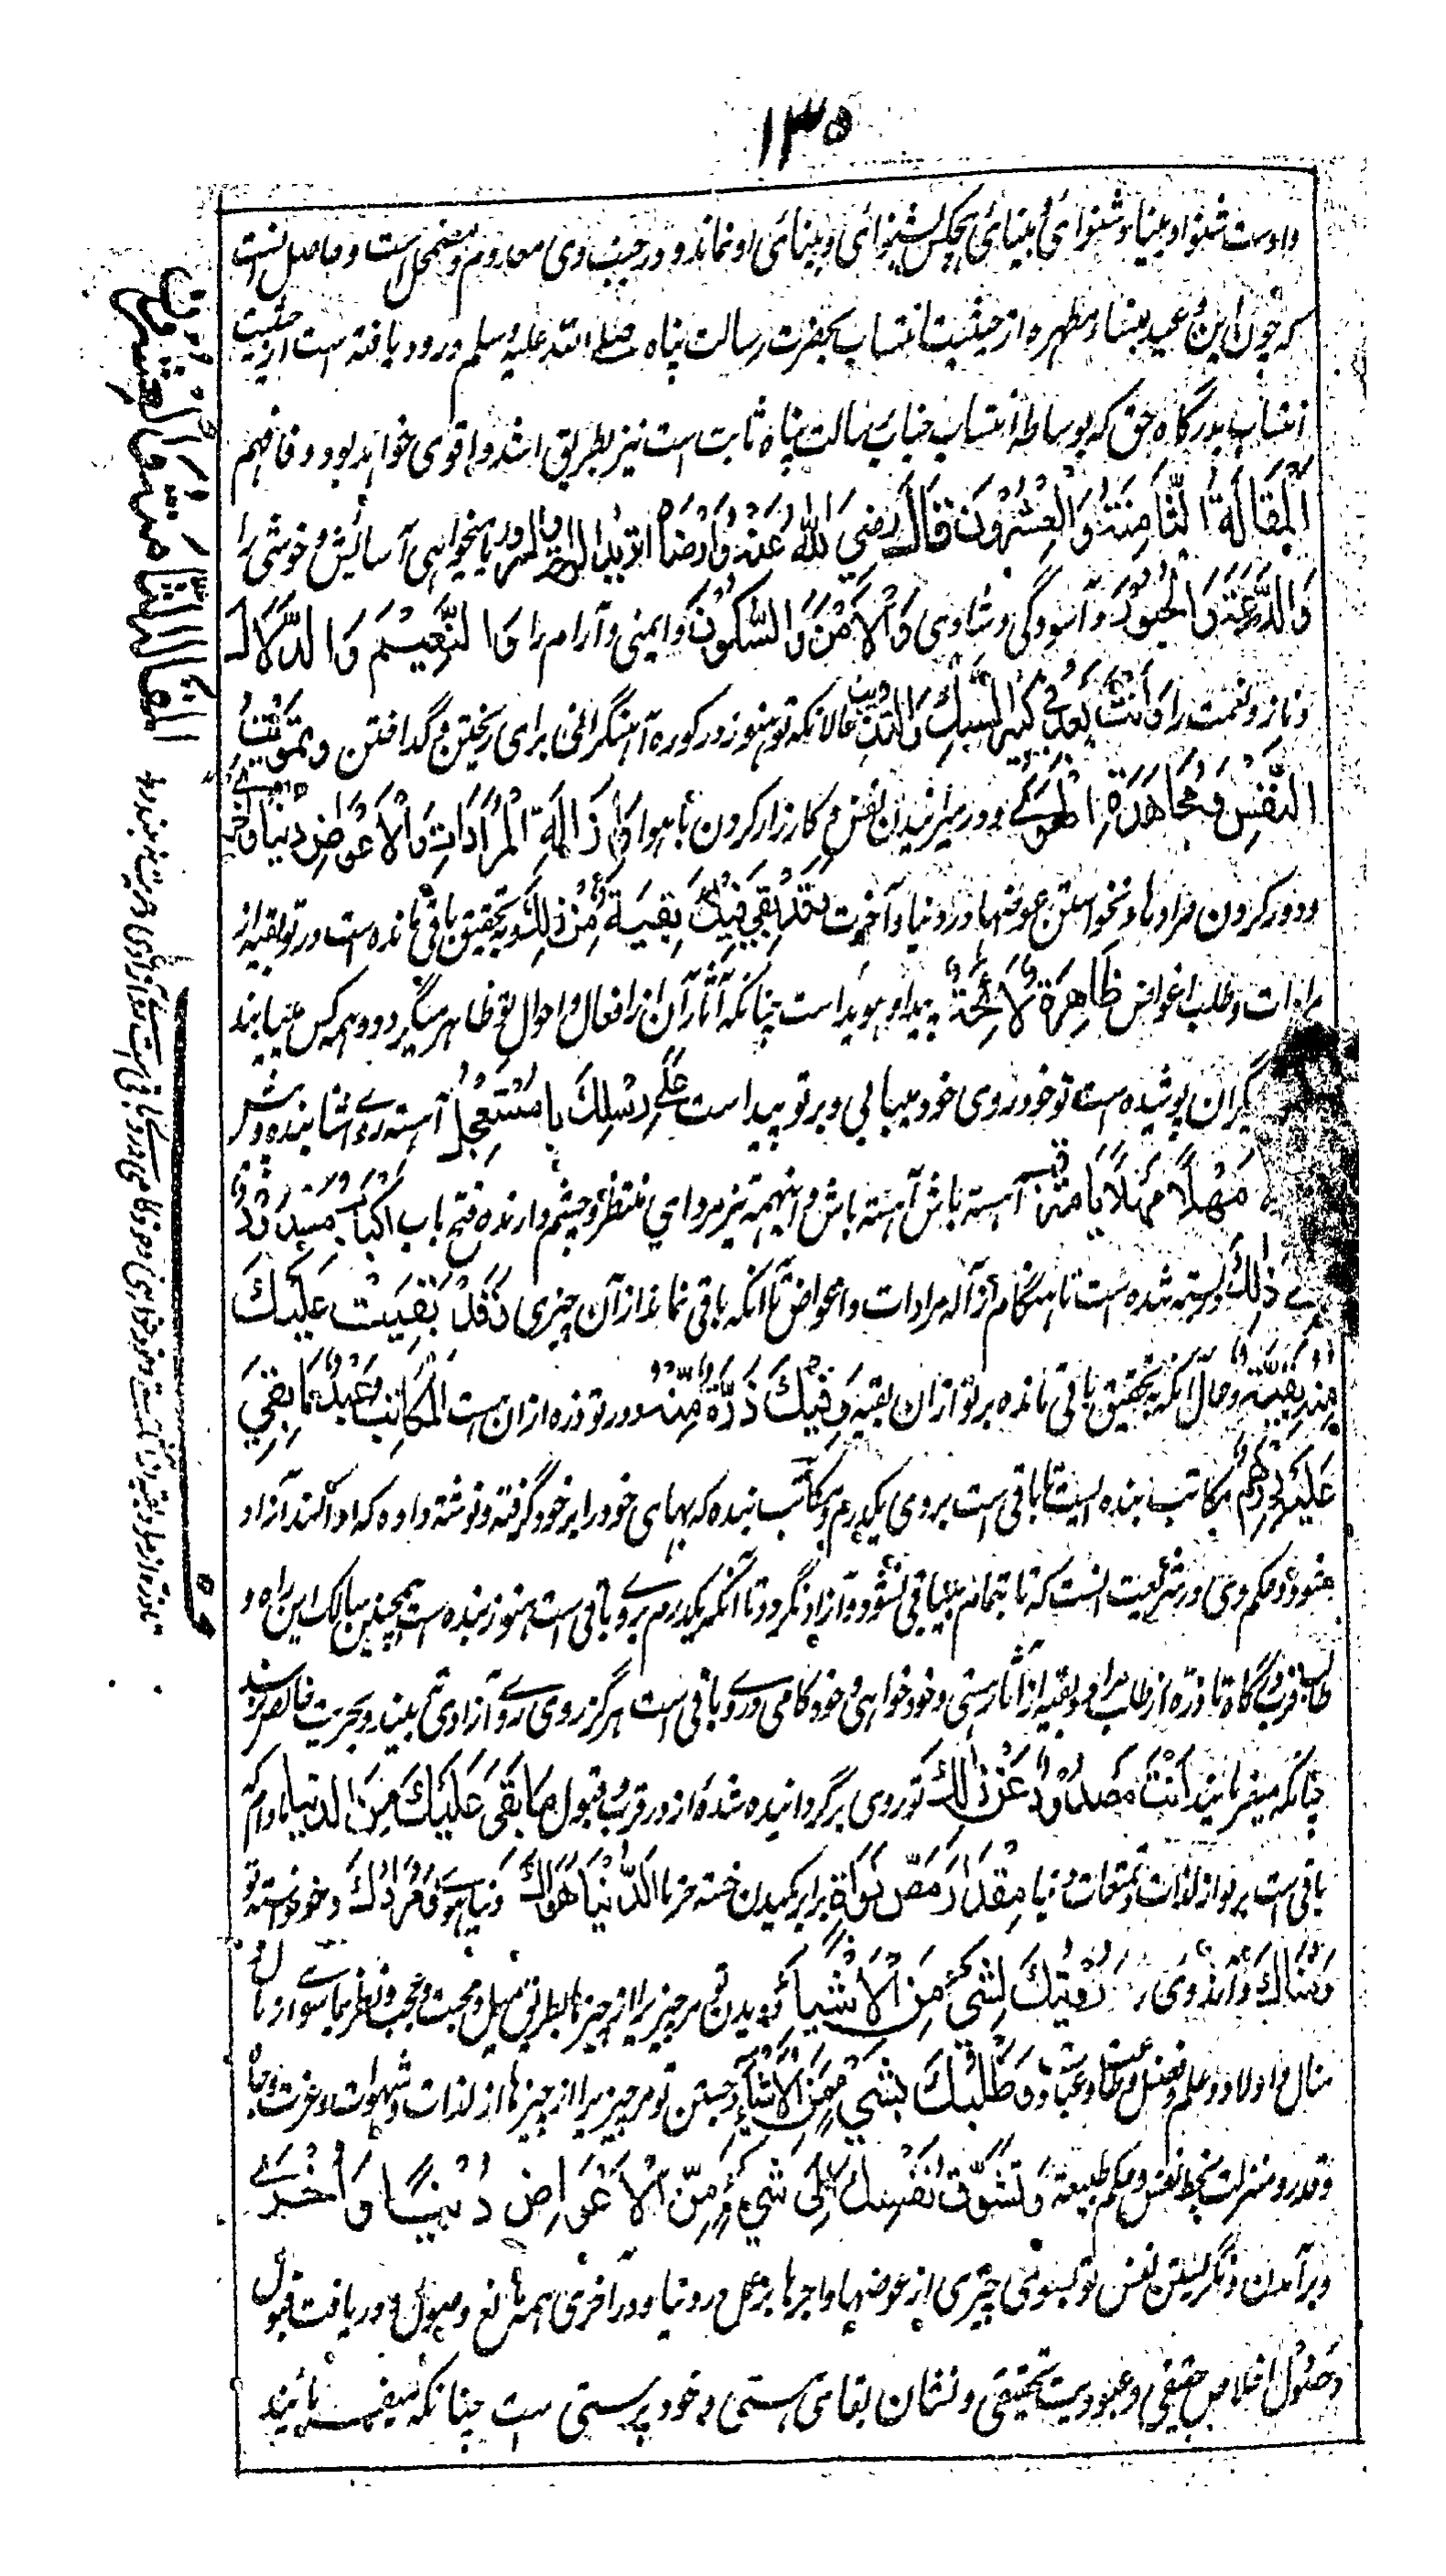 ۱۳۵
و اوست شنوا و بینا و شنوائی و بینائی هیچکس بشنوائی و بینائی او نماند و در جنب وی معدوم و مضمحل است و حاصل آنست
که چون این از حیثیت انتساب بحضرت رسالت پناه صلی الله علیه وسلم ورود یافته است از حیثیت
انتساب بدرگاه حق که بوساطه انتساب جناب رسالت پناه ثابت است نیز بطریق اشد و اقوی خواهد بود فافهم
اَلْمَقَالَةُ الثَّامِنَةُ وَالْعِشْرُونَ قَالَ رَضِيَ اللهُ عَنْهُ وَأَرْضَاهُ اتريد الراحة والسرور آیا میخواهی آسایش و خوشی را
وَالدَّعَةَ وَالْحُبُورَ و آسودگی و شادی وَالْأَمْنَ وَالسُّكُونَ و ایمنی و آرام را وَالنَّعِيمَ وَالدَّلَالَ
و ناز و نعمت را وَأَنْتَ بَعْدُ فِي كِيرِ السَّبْكِ وَالتذويب حالانکه تو هنوز در کوره آهنگرانی برای ریختن و گداختن وَتَمْوِيتِ
النَّفْسِ وَمُجَاهَدَةِ الْهَوَى و در میرانیدن نفس و کارزار کردن با هوا وَإِزَالَةِ الْمُرَادَاتِ وَالْأَعْوَاضِ دُنْيَا وَأُخْرَى
و دور کردن مرادها و نخواستن عوضها در دنیا و آخرت قَدْ بَقِيَ فِيكَ بَقِيَّةٌ مِنْ ذَلِكَ و بتحقیق باقی مانده است در تو بقیه از
مرادات و طلب اعواض ظَاهِرَةٌ لَائِحَةٌ پیدا و هویدا است چنانکه آثار آن از افعال و احوال تو ظاهر میگردد و همه کس مییابند
گران پوشیده است تو خود روی خود مییابی و بر تو پیدا است عَلَى رِسْلِكَ يَا مُسْتَعْجِلُ آهسته رو ای شتابنده
مَهْلًا مَهْلًا يَا مترقب آهسته باش آهسته باش و اینهمه تیز مرو ای منتظر و چشم دارنده فتح باب اَلْبَابُ مَسْدُودٌ
ذَلِكَ و بسته شده است تا هنگام ازاله مرادات و اعواض تا آنکه باقی نماند از آن چیزی وَقَدْ بَقِيَتْ عَلَيْكَ
مِنْهُ بَقِيَّةٌ و حال آنکه بتحقیق باقی مانده بر تو از آن بقیه وَفِيكَ ذَرَّةٌ مِنْهُ و در تو ذره از آن است اَلْمُكَاتَبُ عَبْدٌ مَا بَقِيَ
عَلَيْهِ دِرْهَمٌ مکاتب بنده ایست تا باقی است بر وی یکدرم و مکاتب بنده که بهای خود را بر خود گرفته و نوشته داده که ادا کند آزاد
شود و حکم وی در شریعت آنست که تا بتمامه بیباقی نشود آزاد نگردد تا آنکه یکدرم برو باقی است هنوز بنده است همچنین سالک این راه و
طالب قرب درگاه تا ذره از طلب مراد و بقیه از آثار هستی و خودخواهی و خودکامی در وی باقی است هرگز روی آزادی نمی بیند و بحریت خالص نرسد
چنانکه میفرمایند أَنْتَ مَصْدُودٌ عَنْ ذَلِكَ تو روی برگردانیده شدۀ از در قرب و قبول مَا بَقِيَ عَلَيْكَ مِنَ الدنيا مادام که
باقی است بر تو از لذات و تمتعات دنیا مِقْدَارُ مَصِّ نَوَاةٍ برابر مکیدن خسته خرما اَلدُّنْيَا هَوَاكَ دنیا هوی وَمُرَادُكَ و خواسته تو
وَمُنَاكَ و آرزوی رُؤْيَتُكَ لِشَيْءٍ مِنَ الْأَشْيَاءِ و دیدن تو هر چیزیرا از چیزها بطریق میل و محبت و عجب و نظر بما سوا از
منال و اولاد و علم و فضل وَطَلَبُكَ بشَيْءٍ مِنَ الْأَشْيَاءِ و جستن تو هر چیزیرا از چیزها از لذات و شهوات و عزت و جاه
و قدر و منزلت بحظ نفس و حکم طبیعة وَتَشَوُّقُ نَفْسِكَ إِلَى شَيْءٍ مِنَ الْأَعْوَاضِ دُنْيَا وَأُخْرَى
و برآمدن و نگریستن نفس تو بسوی چیزی از عوضها و اجرها بر عمل در دنیا و در آخری همه مانع وصول و دریافت قبول
و حصول اخلاص حقیقی و عبودیت تحقیقی و نشان بقای هستی و خود پرستی است چنانکه میفرمایند
المقالة الثامنة والعشرون